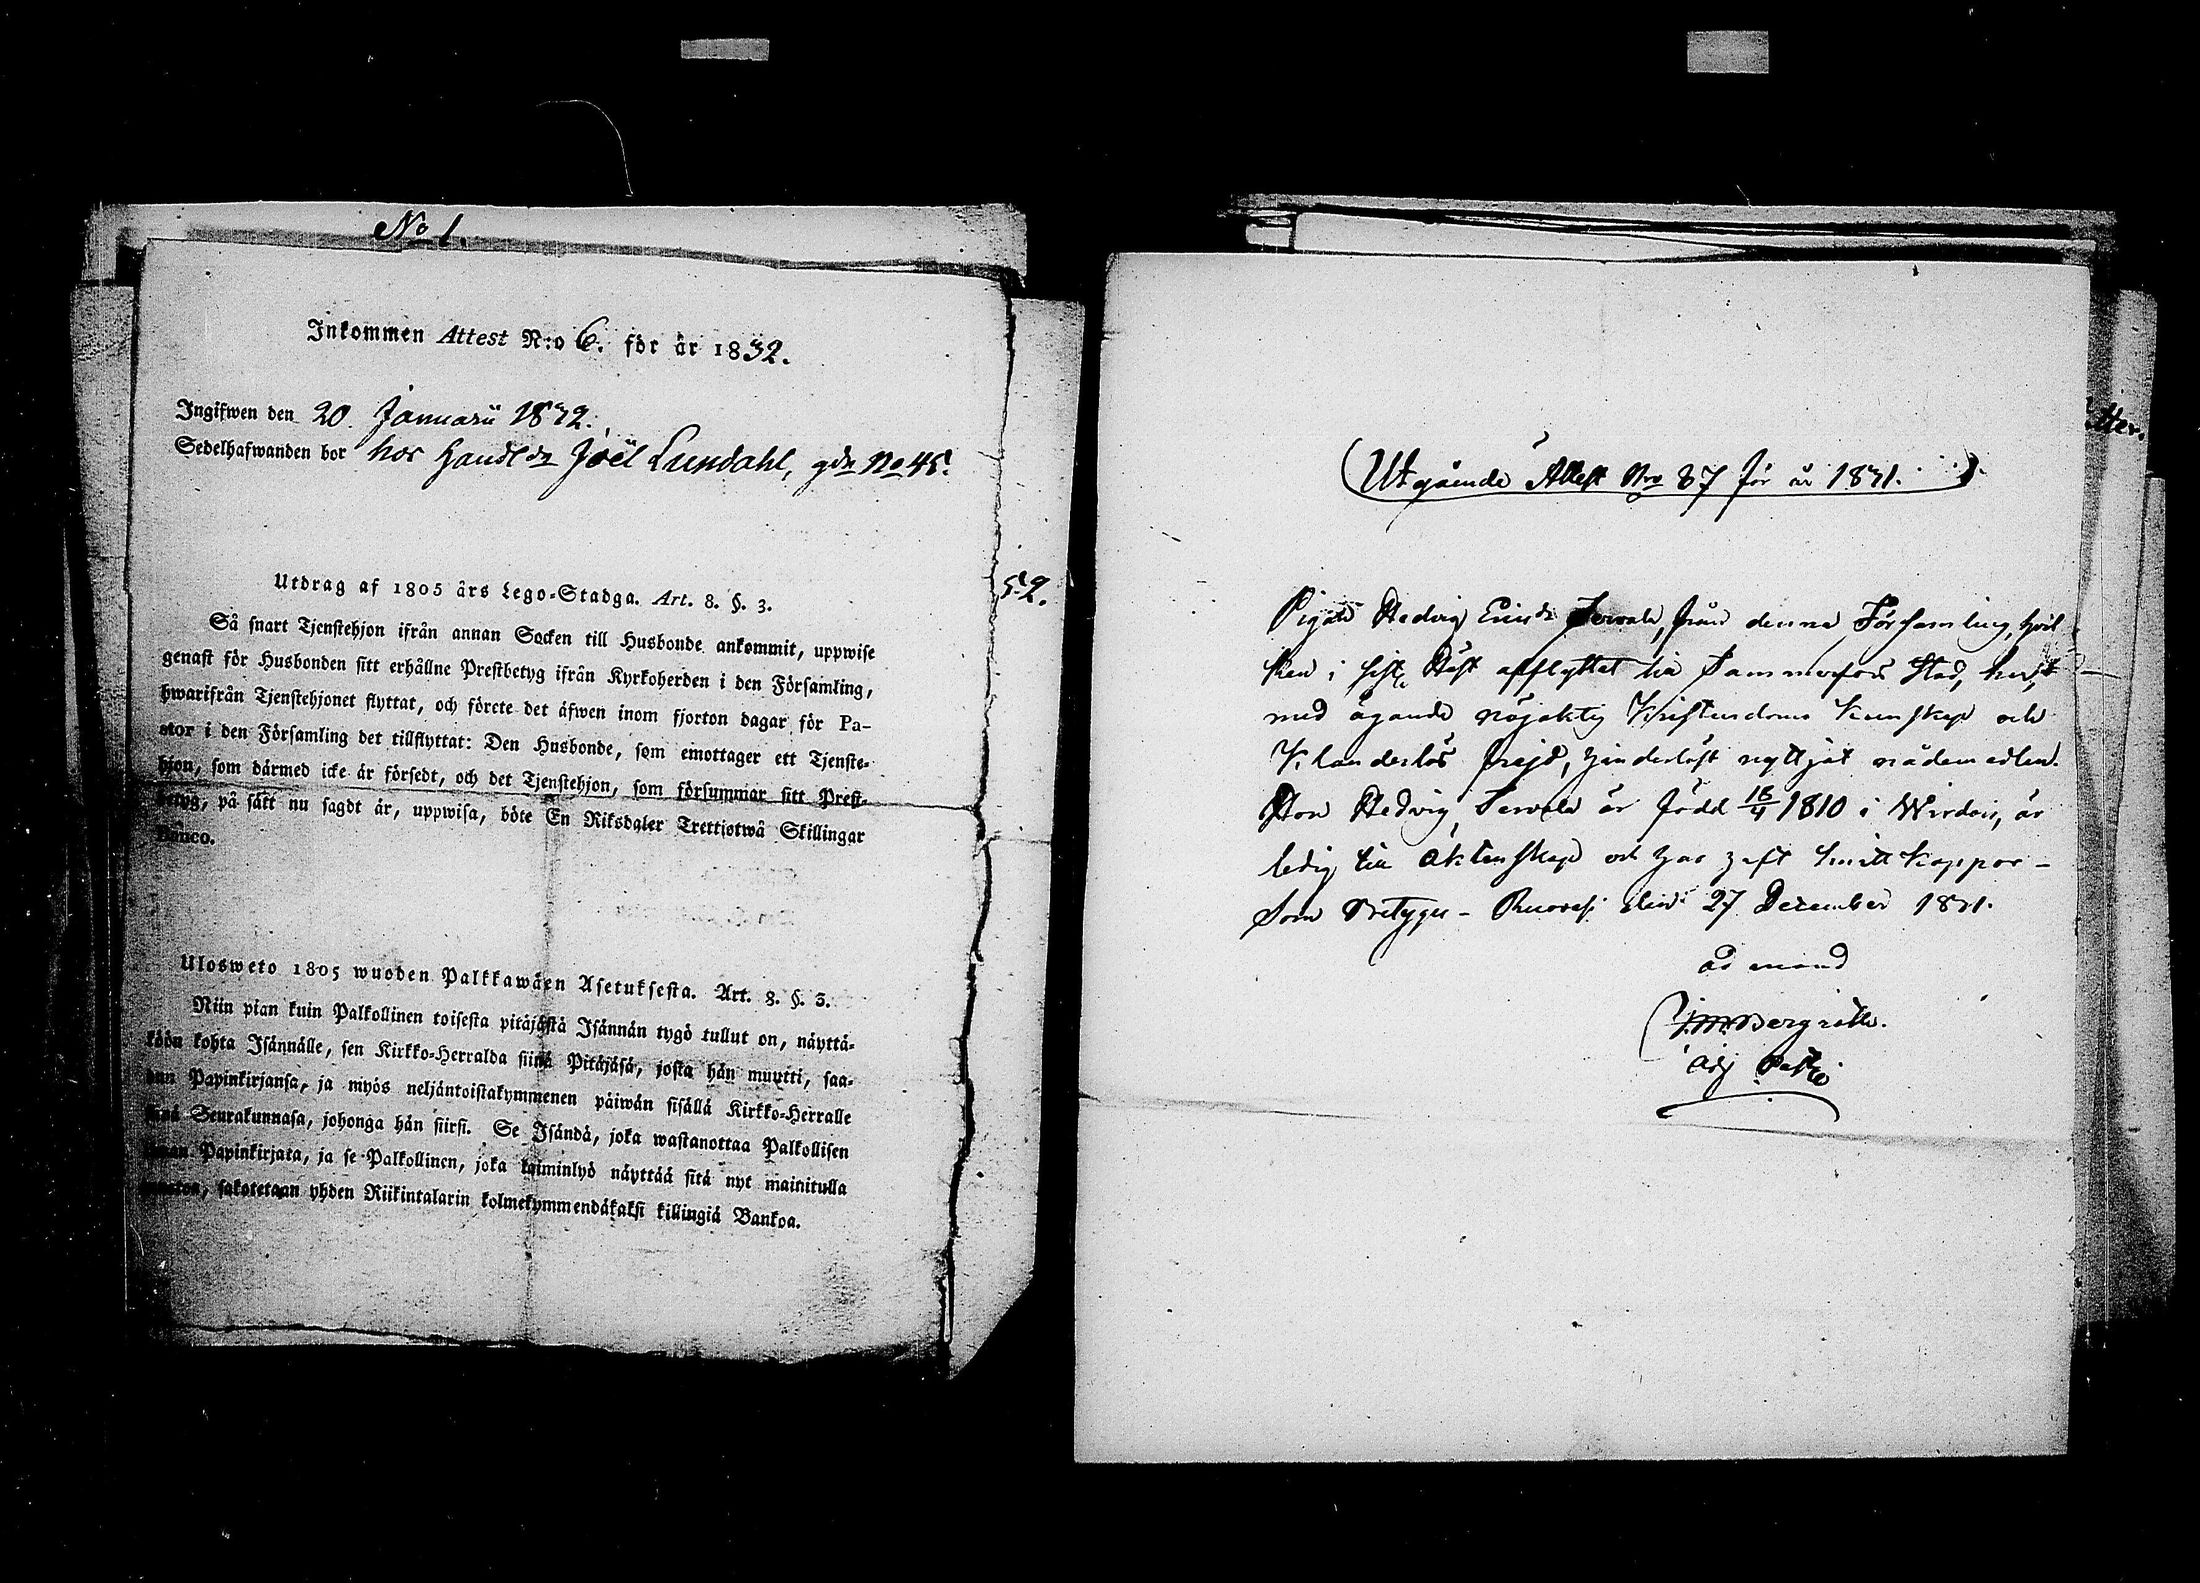 No 1.
Inkommen Attest N:o 6. för år 1832.
Ingifwen den 20 Januarii 1832.
Sedelhafwanden bor hos Handl:dn Joël Lundahl, gdn No 45.
52.
Utdrag af 1805 års Lego-Stadga. Art. 8. §. 3.
Så snart Tjenstehjon ifrån annan Socken till Husbonde ankommit, uppwise
genast för Husbonden sitt erhållne Prestbetyg ifrån Kyrkoherden i den Församling,
hwarifrån Tjenstehjonet flyttat, och förete det äfwen inom fjorton dagar för Pa-
stor i den Församling det tillflyttat: Den Husbonde, som emottager ett Tjenste-
hjon, som därmed icke är försedt, och det Tjenstehjon, som försummar sitt Prest-
betyg, på sätt nu sagdt är, uppwisa, böte En Riksdaler Trettiotwå Skillingar
Banco.
Ulosweto 1805 wuoden Palkkawäen Asetuksesta. Art. 8. §. 3.
Niin pian kuin Palkollinen toisesta pitäjästä Isännän tygö tullut on, näyttä-
köön kohta Isännälle, sen Kirkko-Herralda siinä Pitäjäsä, josta hän muutti, saa-
dun Papinkirjansa, ja myös neljäntoistakymmenen päiwän sisällä Kirkko-Herralle
siinä Seurakunnasa, johonga hän siirsi. Se Isändä, joka wastanottaa Palkollisen
ilman Papinkirjata, ja se Palkollinen, joka laiminlyö näyttää sitä nyt mainitulla
sakotetaan yhden Riikintalarin kolmekymmendäkaksi killingiä Bankoa.
Utgående Attest Nro 87 för år 1831.
Pigan Hedvig Ericsdr Servola, från denna Församling, hvil-
ken i sist. Höst afflyttat till Tammerfors Stad, har,
med ägande nöjaktig Kristendoms Kunskap och
Klanderlös frejd, hinderlöst nyttjat nådemedlen.
Hon Hedvig Servola är född 18/4 1810 i Wirdois, är
ledig till äktenskap och har haft Smittkoppor –
Som Betygas – Ruovesi den 27 December 1831.
ad mand
Bergroth.
Adj Past